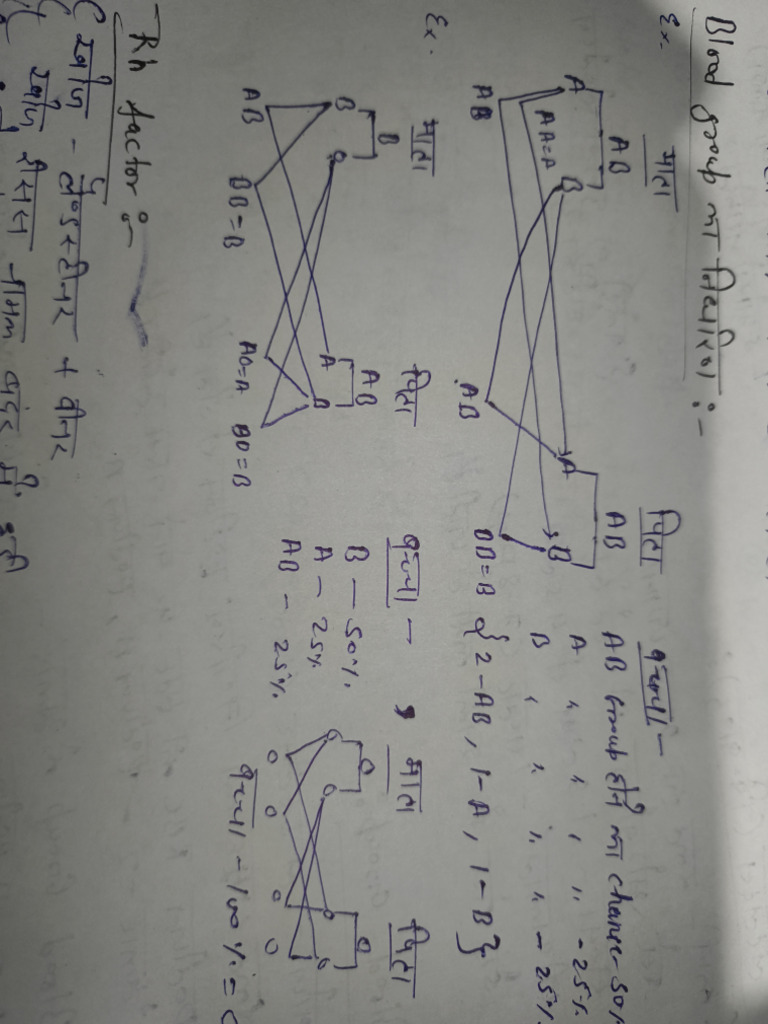 Blood group का निर्धारण :-
Ex.
माता
पिता
बच्चा -
AB
AB
AB Group होने का chance - 50%
A
B
A
B
A " " " " - 25%
B " " " " - 25%
AB
AA=A
AB
BB=B
{ 2-AB, 1-A, 1-B }
Ex.
माता
पिता
बच्चा -
B
AB
B - 50%
B
O
A
B
A - 25%
AB
BB=B
AO=A
BO=B
AB - 25%
माता
पिता
O
O
O
O
O
O
O
O
O
O
बच्चा - 100% =
Rh factor :-
खोज - लैण्डस्टीनर + वीनर
खोज रीसस नामक बंदर में हुई